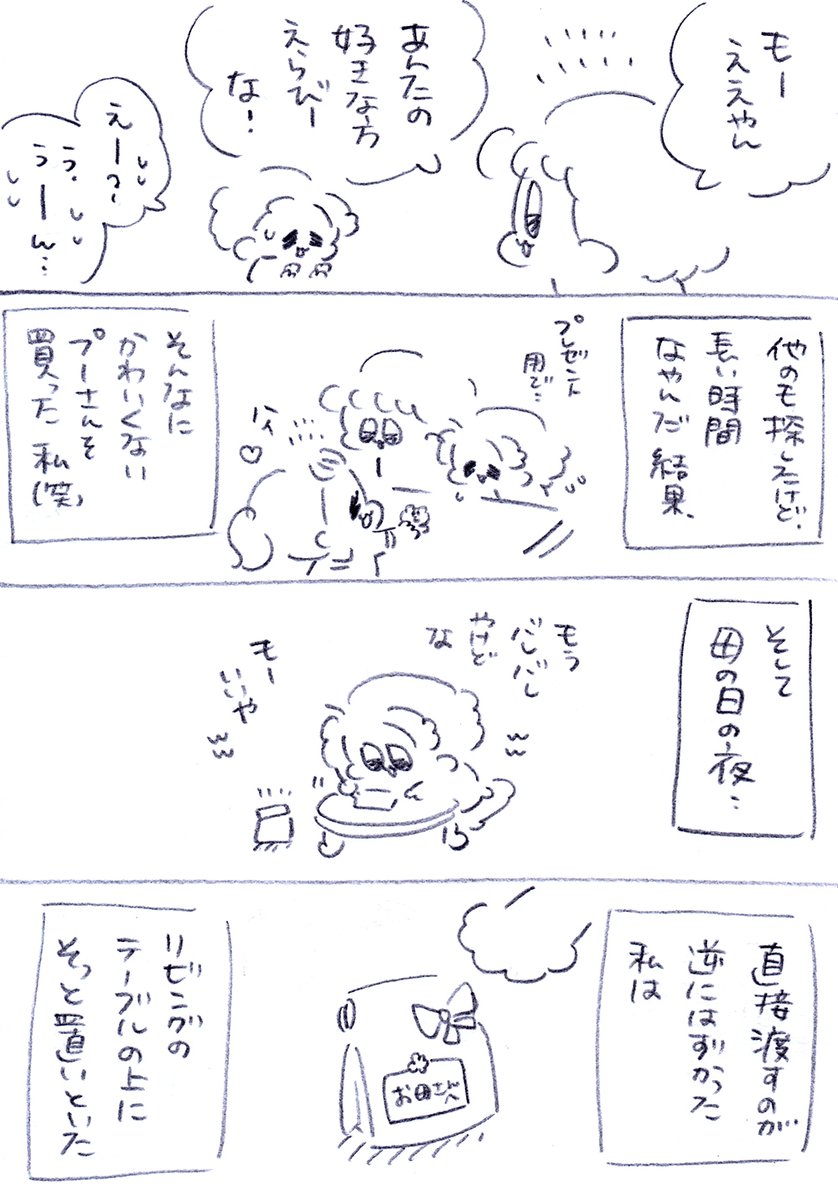 モー
ええやん
あんたの
好きな方
えらびー
な!
えーっ?
う、
うーん…
他のも探したけど、
長い時間
なやんだ結果、
プレゼント
用で…
ハイ
そんなに
かわいくない
プーさんを
買った私(笑)
そして
母の日の夜…
もう
バレバレ
やけど
な
モー
いいや
直接渡すのが
逆にはずかった
私は
お母さんへ
リビングの
テーブルの上に
そっと置いといた